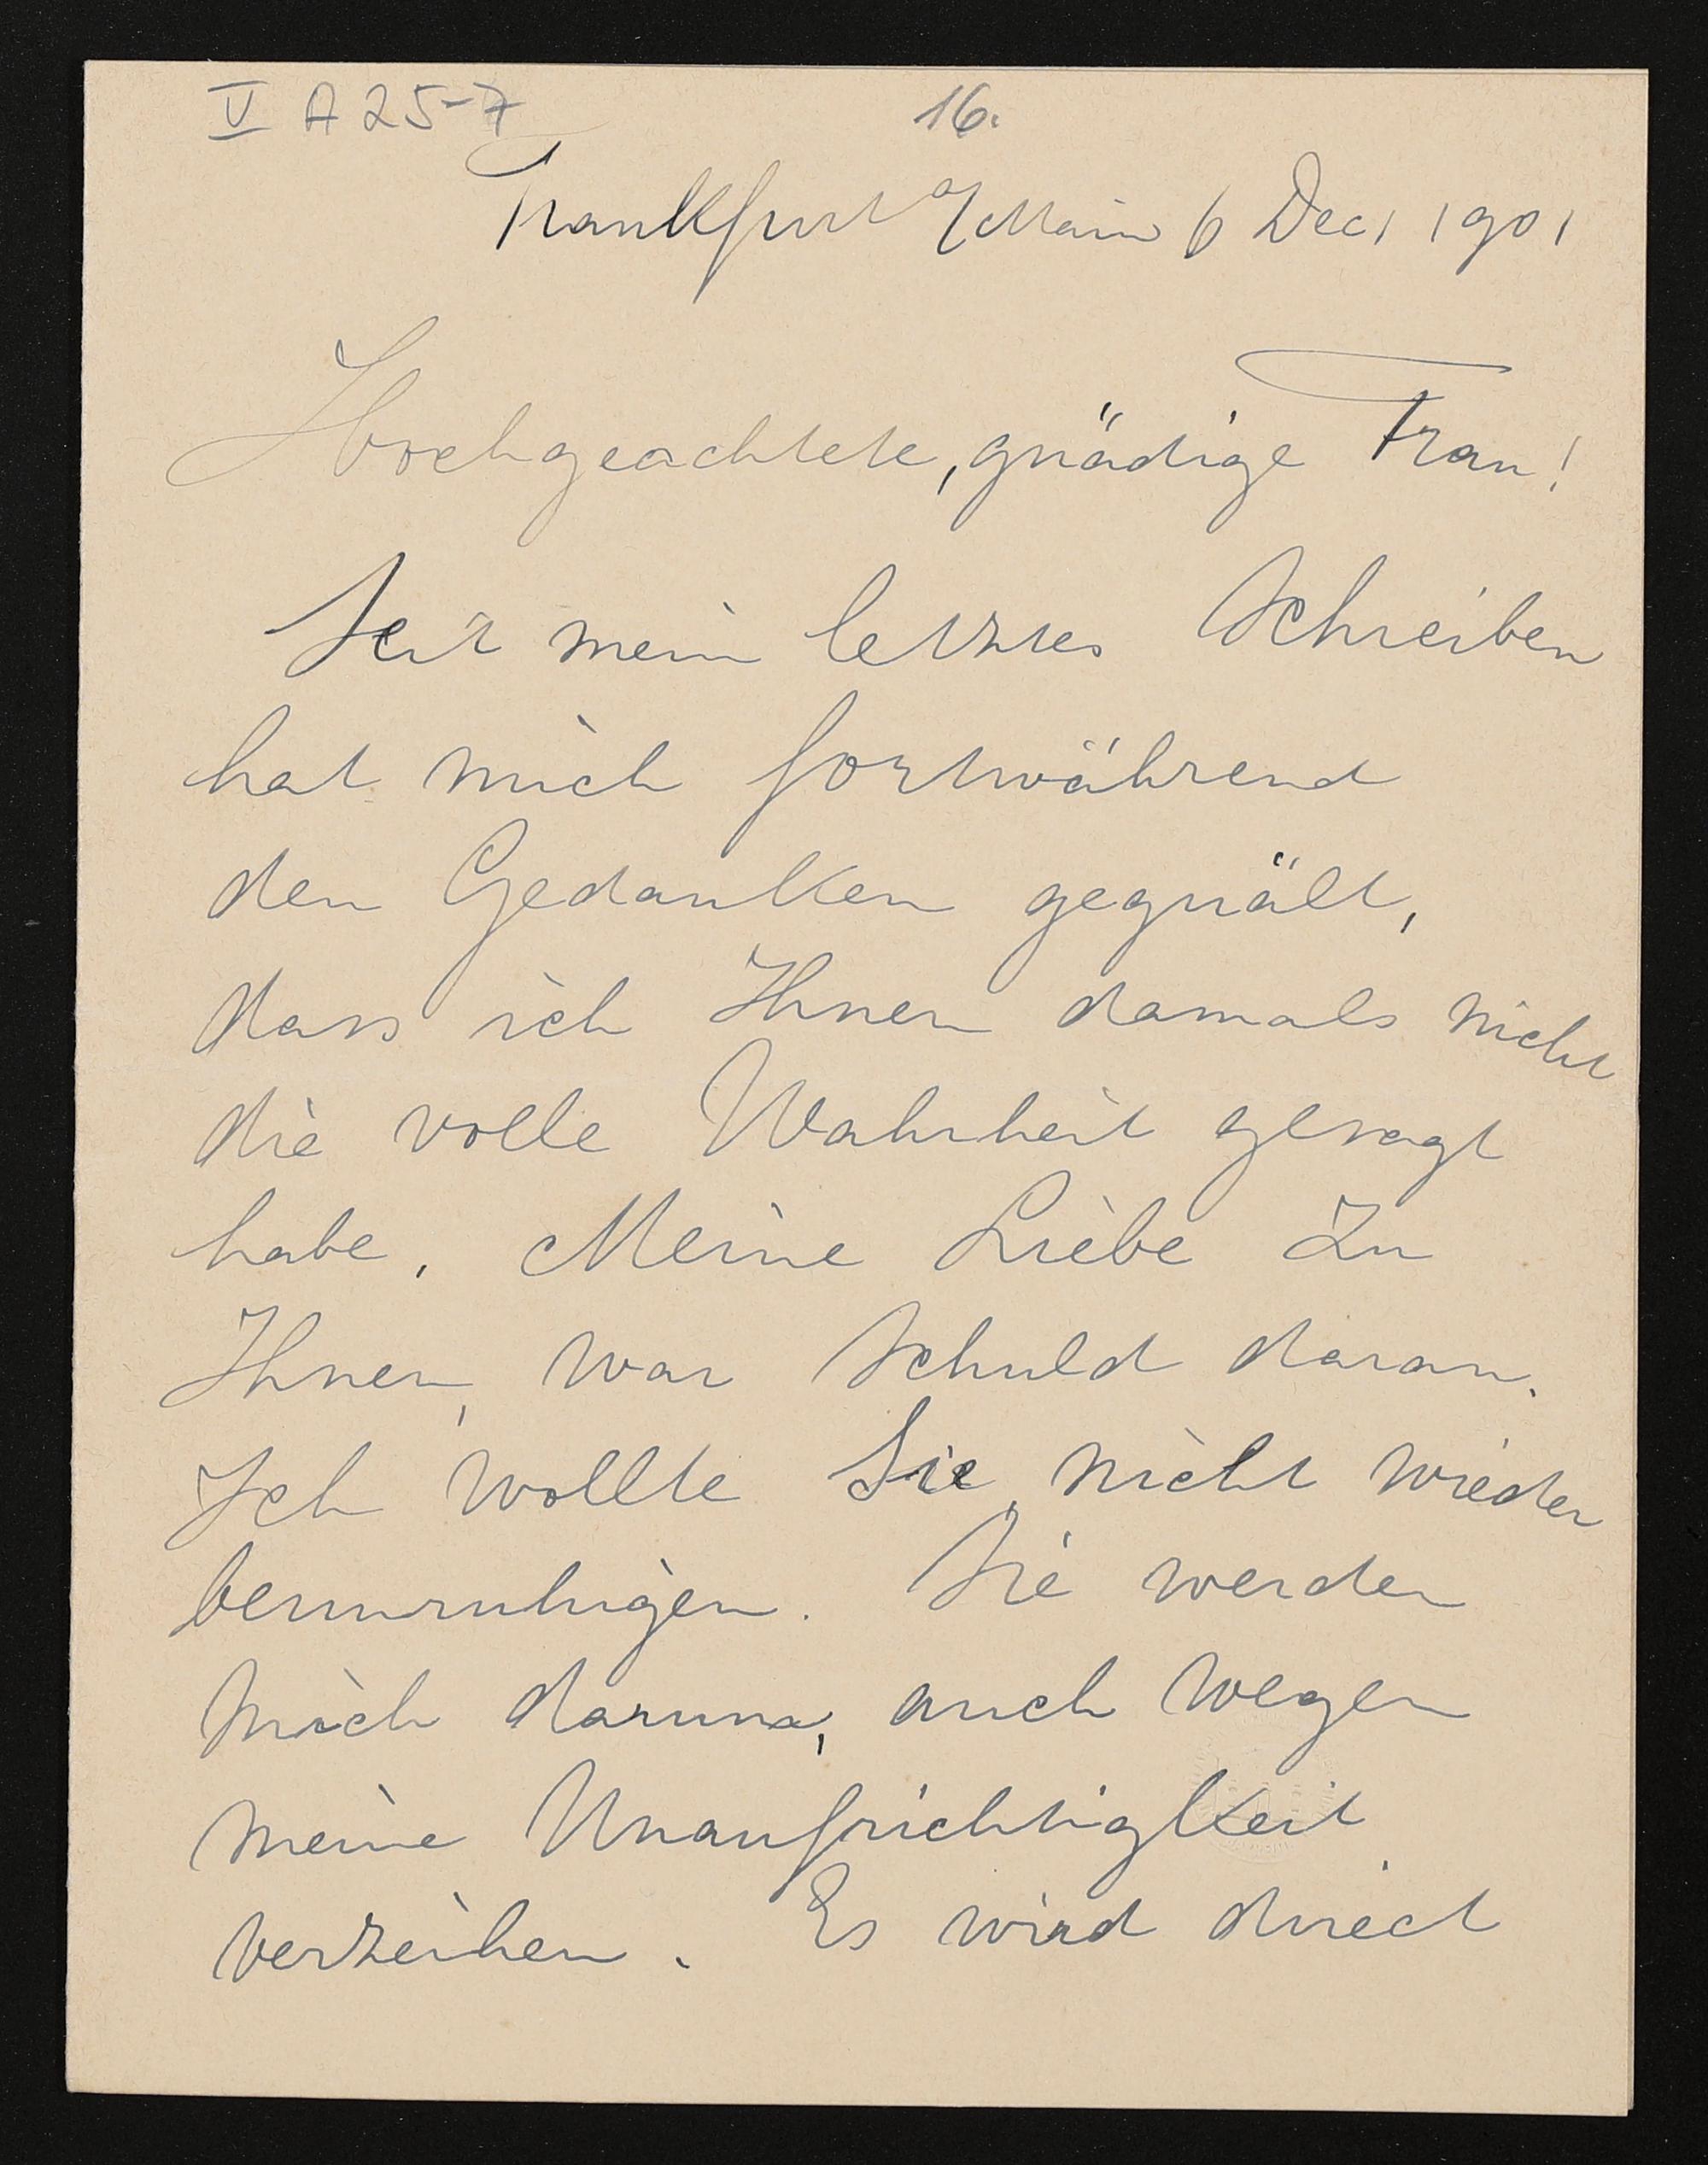 V A 25-7
16.
Frankfurt a/Main 6 Dec, 1901
Hochgeachtete, gnädige Frau!
Seit mein letztes Schreiben
hat mich fortwährend
den Gedanken gequält,
dass ich Ihnen damals nicht
die volle Wahrheit gesagt
habe. Meine Liebe zu
Ihnen, war schuld daran.
Ich wollte Sie, nicht wieder
beunruhigen. Sie werden
mich darum, auch wegen
meine Unaufrichtigkeit
verzeihen. Es wird direct